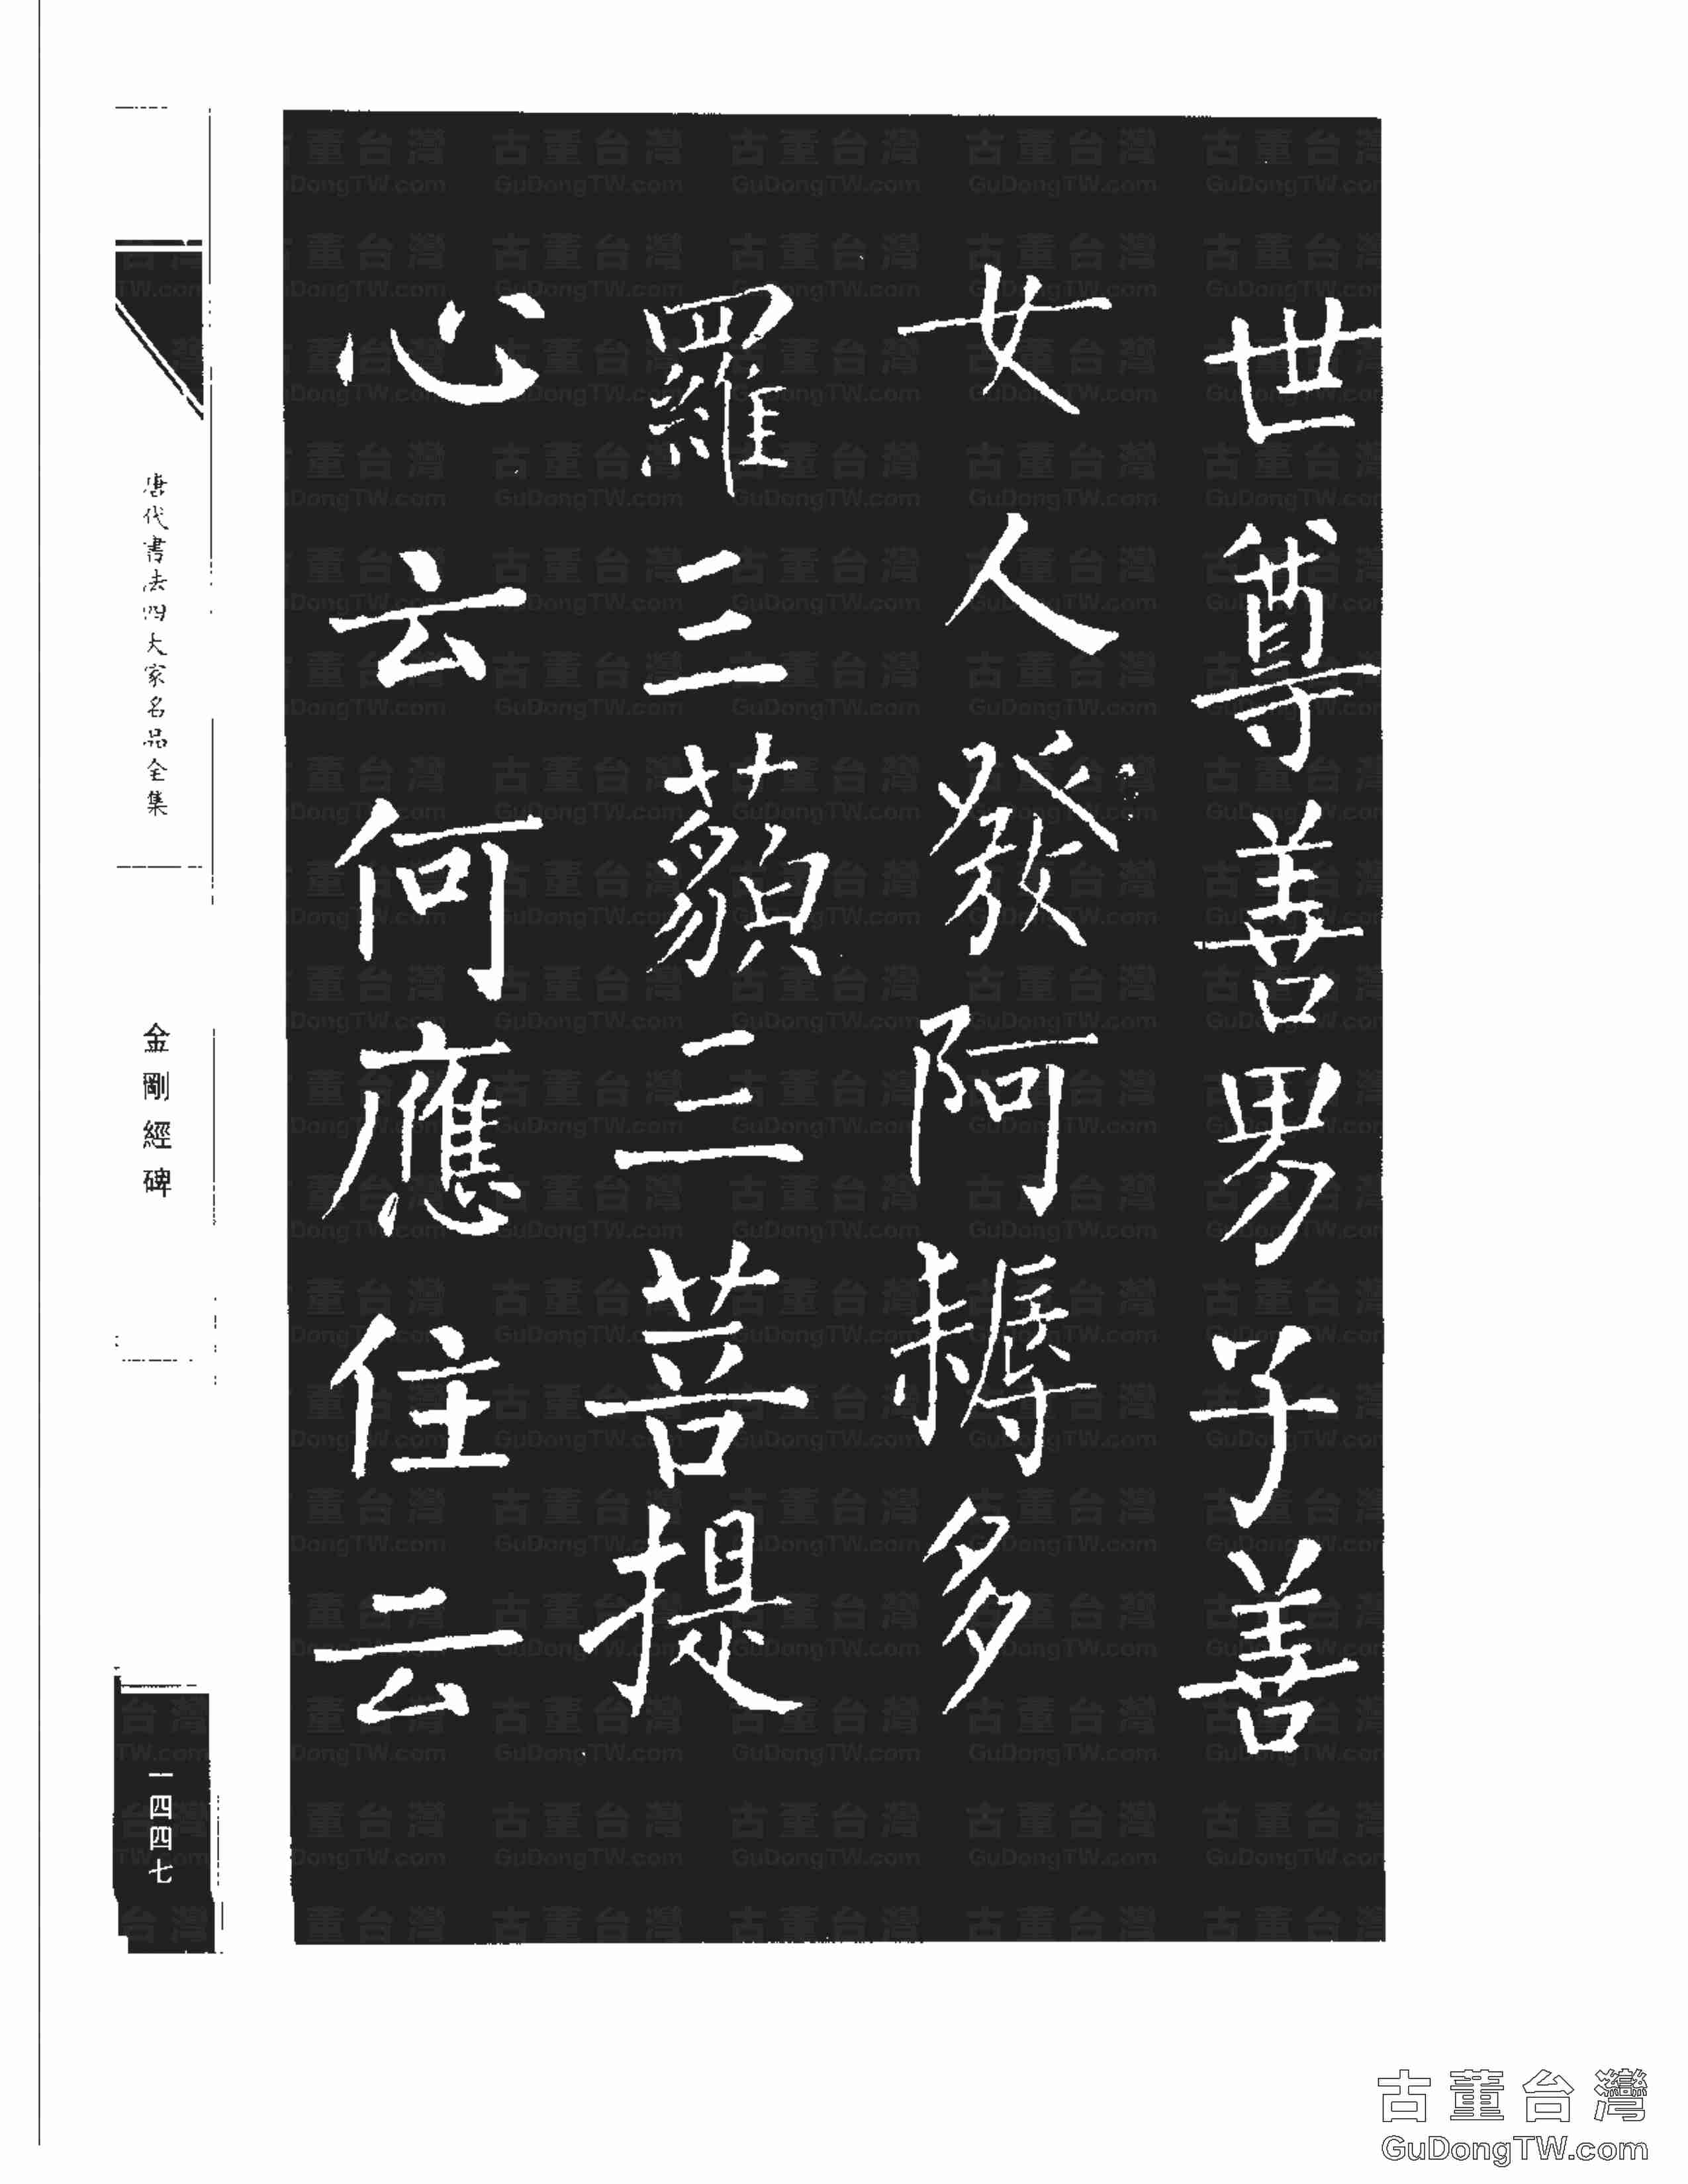 世尊善男子善
女人發阿耨多
羅三藐三菩提
心云何應住云
唐代書法四大家名品全集
金剛經碑
一四四七
古董台灣
GuDongTW.com